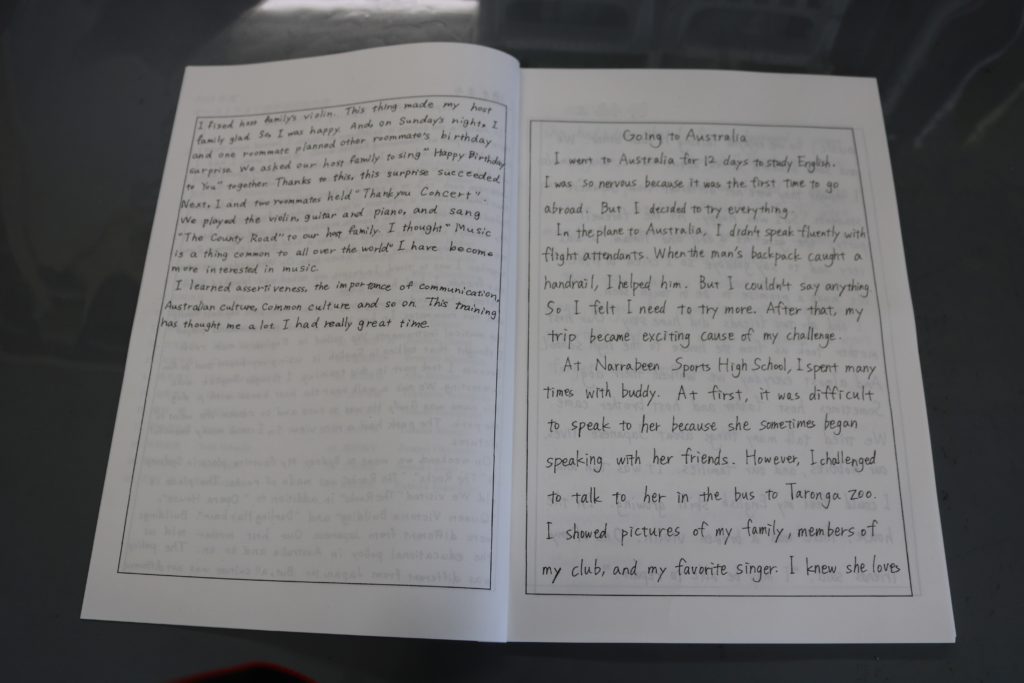 I fixed host family's violin. This thing made my host
family glad. So, I was happy. And, on Sunday's night, I
and one roommate planned other roommate's birthday
surprise. We asked our host family to sing "Happy Birthday
to You" together. Thanks to this, this surprise succeeded.
Next, I and two roommates held "Thankyou Concert".
We played the violin, guitar and piano, and sang
"The County Road" to our host family. I thought "Music
is a thing common to all over the world" I have become
more interested in music.
I learned assertiveness, the importance of communication,
Australian culture, Common culture and so on. This training
has thought me a lot. I had really great time.
Going to Australia
I went to Australia for 12 days to study English.
I was so nervous because it was the first time to go
abroad. But I decided to try everything.
In the plane to Australia, I didn't speak fluently with
flight attendants. When the man's backpack caught a
handrail, I helped him. But I couldn't say anything.
So I felt I need to try more. After that, my
trip became exciting cause of my challenge.
At Narrabeen Sports High School, I spent many
times with buddy. At first, it was difficult
to speak to her because she sometimes began
speaking with her friends. However, I challenged
to talk to her in the bus to Taronga zoo.
I showed pictures of my family, members of
my club, and my favorite singer. I knew she loves